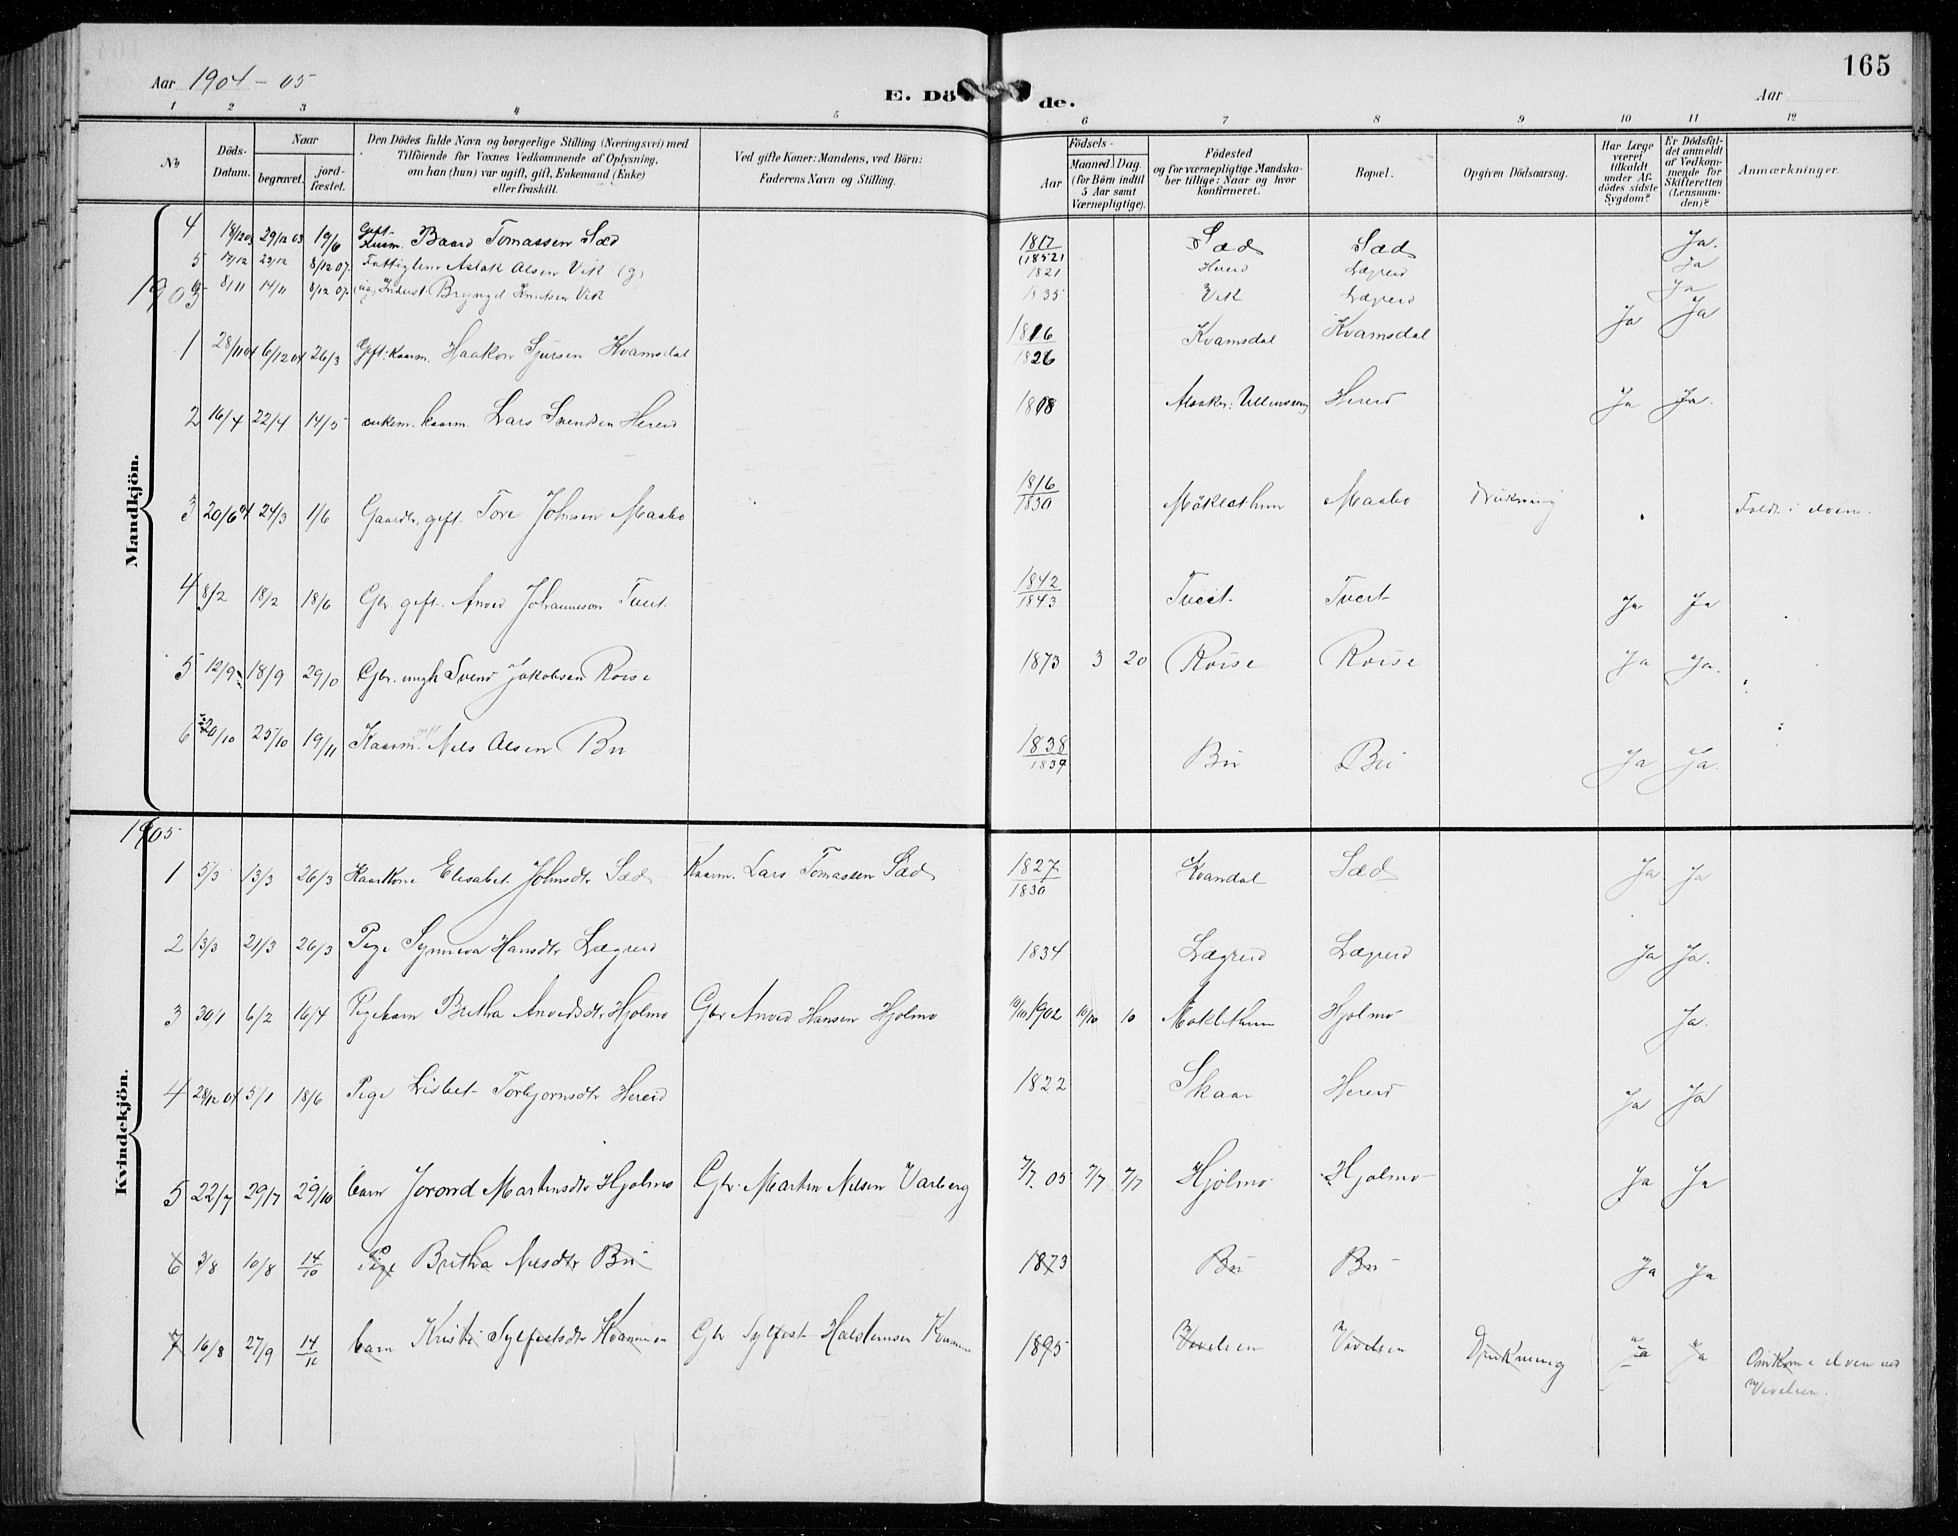 165
Aar 1904 - 05
E. Dö de.
Aar
1 2 3 4 5 6 7 8 9 10 11 12
No
Döds-
Datum.
Naar
begravet. jord-
fæstet.
Den Dödes fulde Navn og borgerlige Stilling (Næringsvei) med
Tilföiende for Voxnes Vedkommende af Oplysning,
om han (hun) var ugift, gift, Enkemand (Enke)
eller fraskilt.
Ved gifte Koner: Mandens, ved Börn:
Faderens Navn og Stilling.
Födsels-
Aar Maaned Dag
(for Börn indtil
5 Aar samt
Værnepligtige).
Födested
og for værnepligtige Mandskaber
tillige: Naar og hvor
konfirmeret.
Bopæl.
Opgiven Dödsaarsag.
Har Læge
været
tilkaldt
under Af-
dödes sidste
Sygdom?
Er Dödsfal-
det anmeldt
af Vedkom-
mende for
Skifteretten
(Lensman-
den)?
Anmærkninger.
Mandkjön.
4 18/12 03 29/12 03 19/6 Gift Kaarm. Baard Tomassen Sæd 1817 (1852) Sæd Sæd Ja.
5 17/12 23/12 8/12 07. Fattiglem Aslak Olsen Vik (g) 1821 Hereid Lægreid Ja
6 8/11 14/11 8/12 07. Inderst Bryngel Knutsen Vik 1835 Vik Lægreid Ja
1905
1 28/11 04 6/12 04 26/3 Gift. Kaarm. Haakon Sjursen Kvamsdal 1816 1826 Kvamsdal Kvamsdal Ja Ja
2 16/4 22/4 14/5 enkem. kaarm. Lars Svendsen Hereid 1818 Alsaker: Ullensvang Hereid Ja Ja.
3 20/6 04 24/3 1/6 Gaardbr. gift. Tore Johnsen Maabo 1816 1830 Möklethun Maabo Drukning Faldt i elven.
4 8/2 18/2 18/6 Gbr gift. Anved Johannesson Tveit. 1842 1843 Tveit. Tveit Ja Ja
5 12/9 18/9 29/0 Gbr. ungk Svend Jakobsen Roise 1873 3 20 Roise Roise Ja Ja.
6 20/10 25/10 19/11 Kaarm. Nils Olsen Bu 1838 1839 Bu Bu Ja Ja.
Kvindekjön.
1905
1 5/3 13/3 26/3 Kaarkone Elisabet Johnsdtr Sæd Kaarm. Lars Tomassen Sæd 1827 1830 Kvandal Sæd Ja Ja
2 13/3 21/3 26/3 Pige Synneva Hansdtr Lægreid 1834 Lægreid Lægreid Ja Ja.
3 30/1 6/2 16/4 Pigebarn Britha Anvedsdtr Hjolmo Gbr Anved Hansen Hjolmo 10/10 1902 10/10 10 Möklethun Hjolmo Ja.
4 28/12 04 5/1 18/6 Pige Lisbet Torbjornsdtr Hereid 1822 Skaar Hereid Ja Ja
5 22/7 29/7 29/10 barn Jorond Martinsdtr Hjolmo Gbr. Martin Nilsen Varberg 7/7 05 7/7 7/7 Hjolmo Hjolmo Ja Ja
6 3/8 10/8 14/10 Pige Britha Nilsdtr Bu 1873 Bu Bu Ja Ja
7 16/8 27/9 14/10 barn Kristi Sylfestsdtr Kvammen Gbr Sylfest Halstensen 1895 Drukning Ja Ja Omkom i elven ved